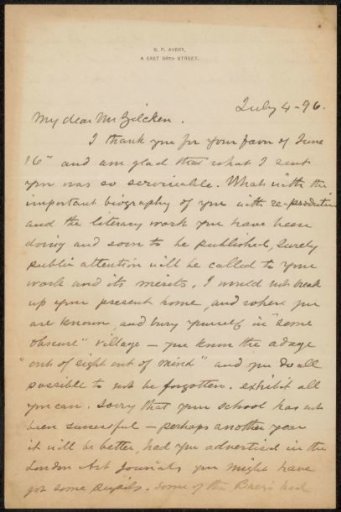 S. P. AVERY,
4 EAST 38TH STREET.
July 4-96.
My dear Mr Zilcken.
I thank you for your favor of June
16" and am glad that what I sent
you was so serviceable. What with the
important biography of you with re-productions
and the literary work you have been
doing and soon to be published, surely
public attention will be called to your
work and its merits. I would not break
up your present home, and where you
are known, and bury yourself in "some
obscure" village – you know the adage
"out of sight out of mind" and you do all
possible to not be forgotten. exhibit all
you can. Sorry that your school has not
been successful – perhaps another year
it will be better, had you advertised in the
London Art Journals you might have
got some pupils. Some of the had